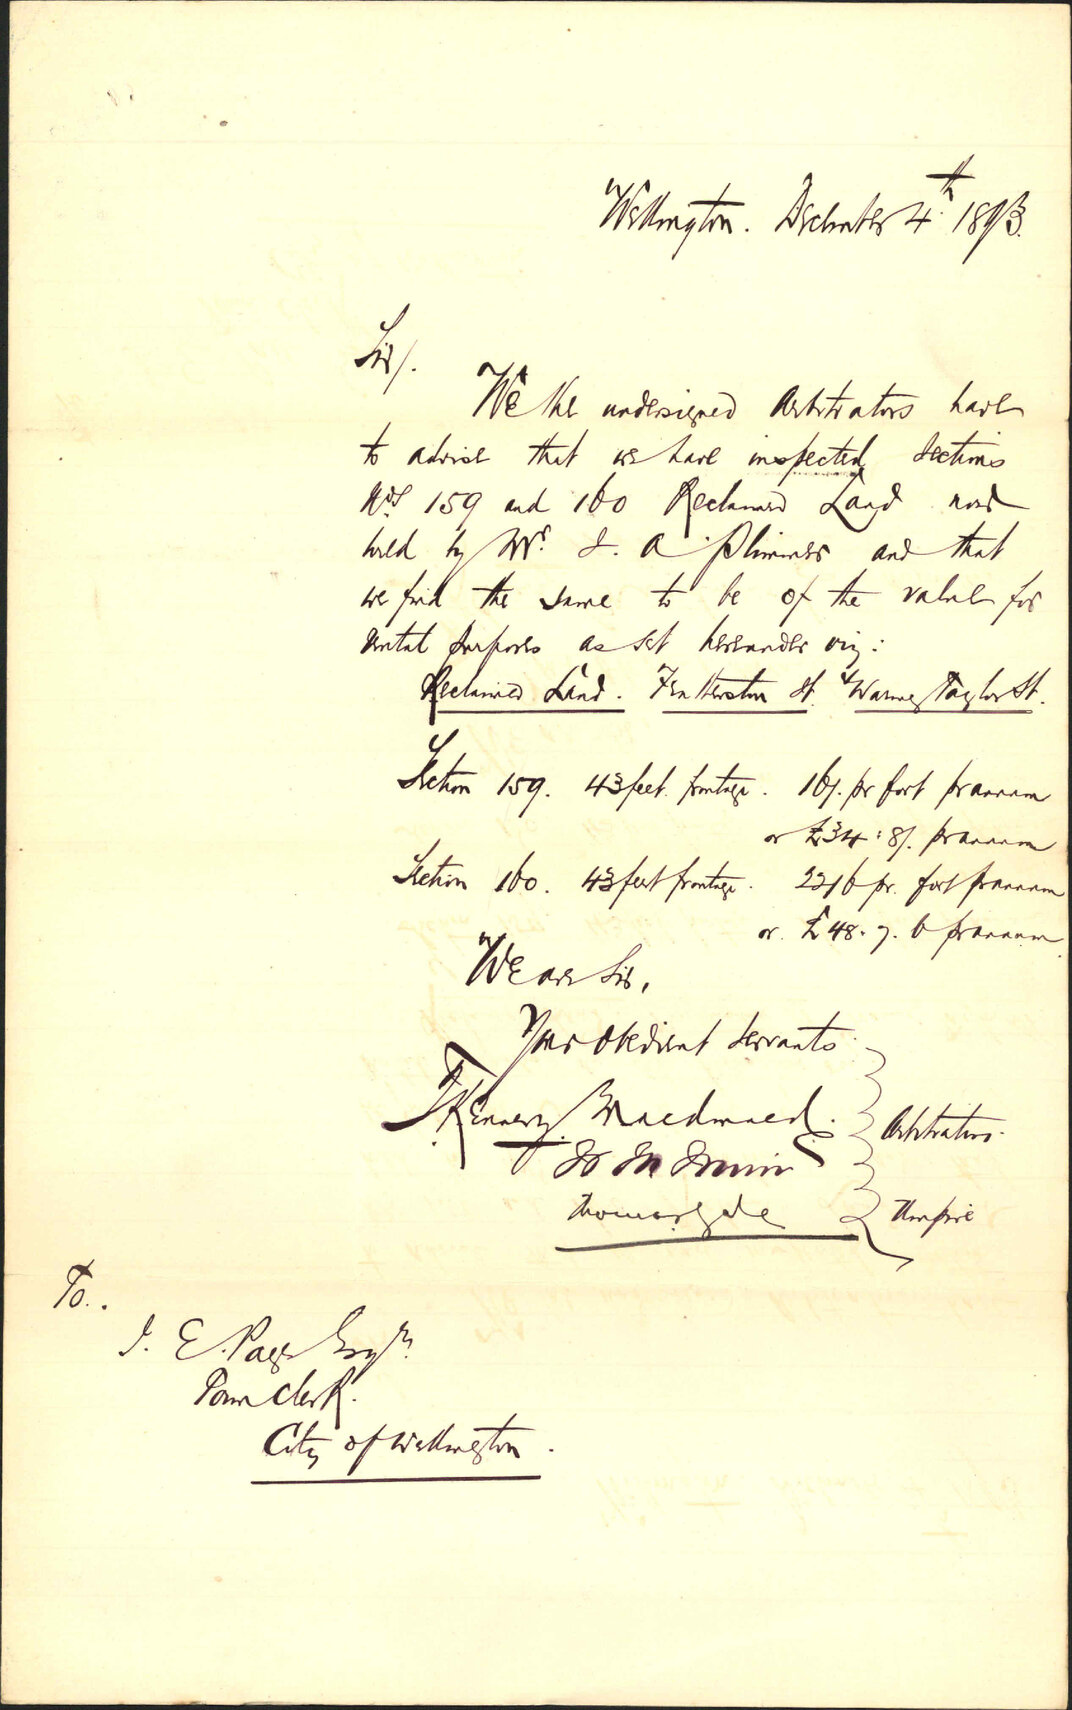 Wellington. December 4th 1893.
Sir/.
We the undersigned Arbitrators have
to advise that we have inspected Sections
Nos 159 and 160 Reclaimed Land now
held by Mr. I. A. Plimmer and that
we find the same to be of the value for
rental purposes as set hereunder viz:
Reclaimed Land. Featherston St. & Waring Taylor St.
Section 159. 43 feet frontage. 16/. pr foot pr annum
or £34:8/. pr annum
Section 160. 43 feet frontage. 22/6 pr. foot pr annum
or. £48.7.6 pr annum
We are Sir,
Your Obedient Servants
T. Kennedy Macdonald. Arbitrators.
Thomas Umpire
To..
J. E. Page Esqr.
Town Clerk.
City of Wellington.